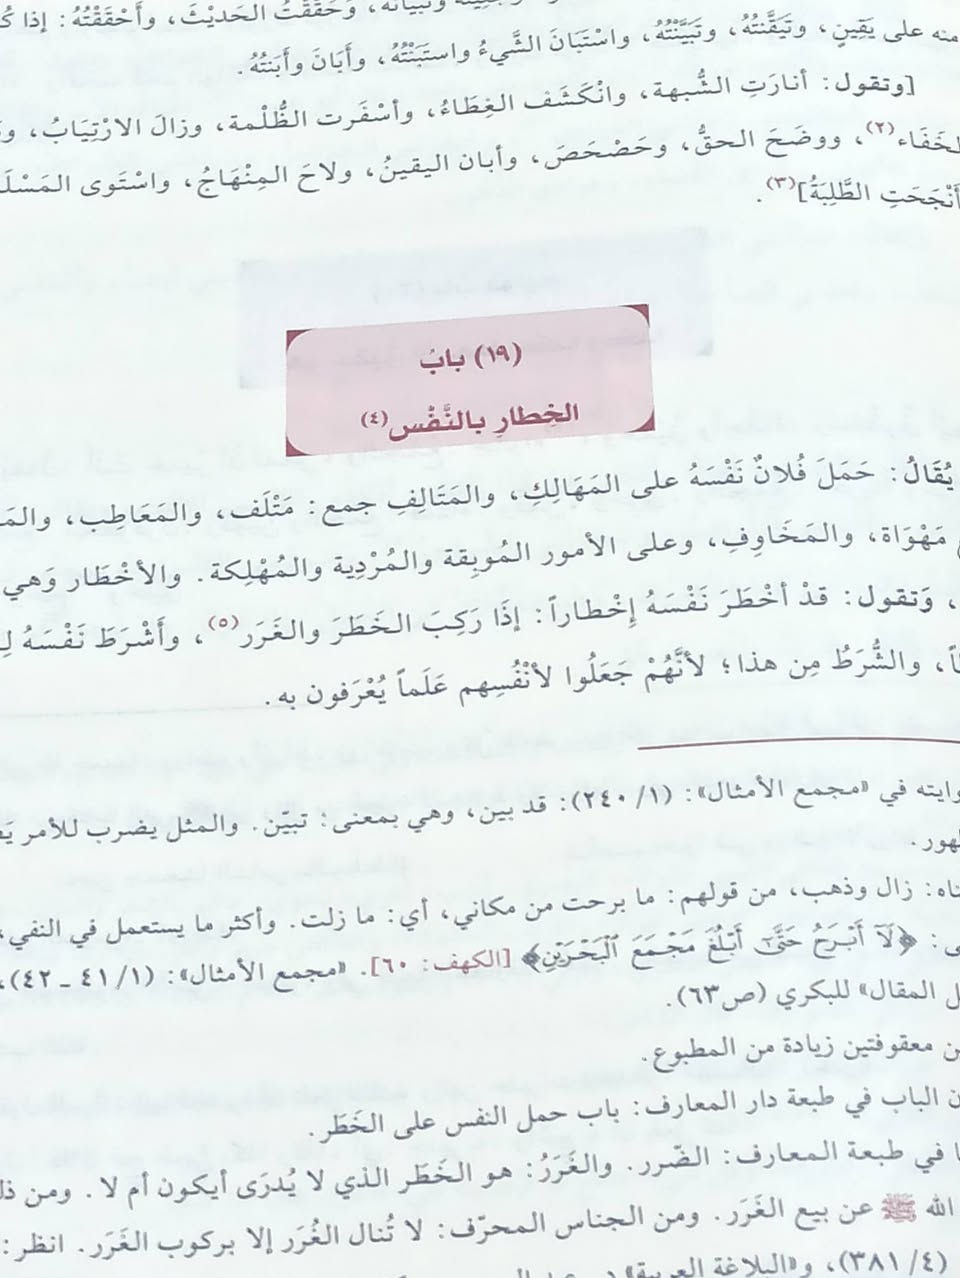 منه على يَقِينٍ، وتَيَقَّنتُهُ، وتَبَيَّنْتُهُ، واسْتَبَانَ الشَّيءُ واستَبَنْتُهُ، وأبَانَ وأبَنتُهُ.
وتبيانه، وحَقَّقْتُ الحَديْثَ، وأحْقَقْتُهُ: إذا
[وتقول: أنارَتِ الشُّبهة، وانْكَشَف الغِطَاءُ، وأسْفَرت الظُّلْمة، وزالَ الارْتِيَابُ،
الخَفَاء(٢)، ووضَحَ الحقُّ، وحَصْحَصَ، وأبان اليقينُ، ولاحَ المِنْهَاجُ، واسْتَوى
أنْجَحَتِ الطَّلِبَةُ](٣).
(١٩) بابُ
الخِطارِ بالنَّفْس(٤)
يُقَالُ: حَمَلَ فُلانٌ نَفْسَهُ على المَهَالِكِ، والمَتَالِفِ جمع: مَتْلَف، والمَعَاطِب،
مَهْوَاة، والمَخَاوِفِ، وعلى الأمور المُوبِقة والمُرْدِية والمُهْلِكة. والأخْطَار وَهي
، وَتقول: قدْ أخْطَرَ نَفْسَهُ إخْطاراً: إذَا رَكِبَ الخَطَرَ والغَرَر(٥)، وأَشْرَطَ نَفْسَهُ
، والشُّرَطُ مِن هذا؛ لأنَّهُمْ جَعَلُوا لأنْفُسِهم عَلَماً يُعْرَفون به.
في «مجمع الأمثال»: (٢٤٠/١): قد بين، وهي بمعنى: تبيّن. والمثل يضرب للأمر
زال وذهب، من قولهم: ما برحت من مكاني، أي: ما زلت. وأكثر ما يستعمل في النفي،
﴿لَآ أَبْرَحُ حَتَّىٰٓ أَبْلُغَ مَجْمَعَ ٱلْبَحْرَيْنِ﴾ [الكهف: ٦٠]. «مجمع الأمثال»: (٤١/١ ـ ٤٢)،
المقال» للبكري (ص٦٣).
معقوفتين زيادة من المطبوع.
الباب في طبعة دار المعارف: باب حمل النفس على الخَطَر.
في طبعة المعارف: الضّرر. والغَرَرُ: هو الخَطَر الذي لا يُدرَى أيكون أم لا. ومن
الله ﷺ عن بيع الغَرَر. ومن الجناس المحرّف: لا تُنال الغُرَر إلا بركوب الغَرَر. انظر:
(٣٨١/٤)، و«البلاغة العربية»